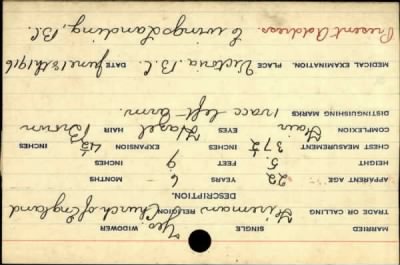 MARRIED SINGLE Yes. WIDOWER
TRADE OR CALLING Fireman RELIGION Church of England
DESCRIPTION.
APPARENT AGE 22 YEARS 6 MONTHS
HEIGHT 5 FEET 9 INCHES
CHEST MEASUREMENT 37½ INCHES EXPANSION 4½ INCHES
COMPLEXION Fair EYES Hazel HAIR Brown
DISTINGUISHING MARKS 1 vacc left arm.
MEDICAL EXAMINATION. PLACE Victoria B.C. DATE June 13th 1916
Present Address. Ewings Landing, B.C.